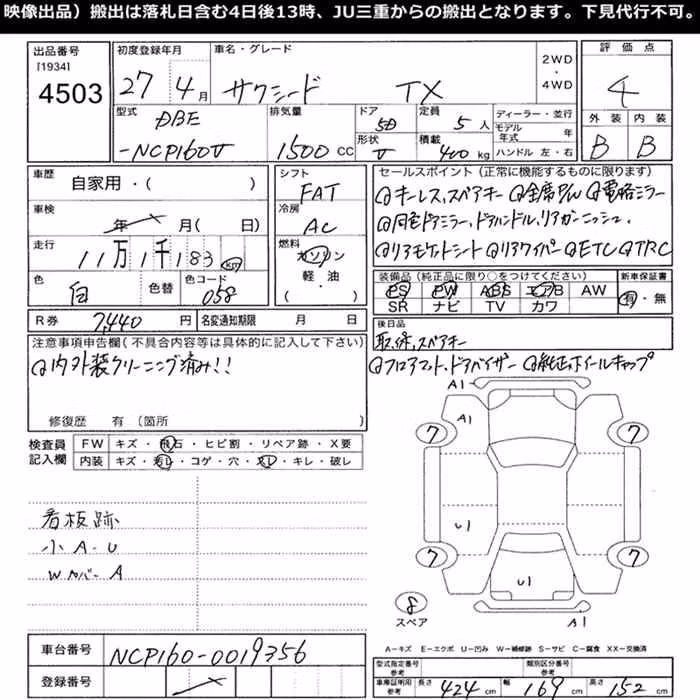 映像出品）搬出は落札日含む4日後13時、JU三重からの搬出となります。下見代行不可。
出品番号 初度登録年月 車名・グレード 2WD・4WD 評価点
[1934]
4503 27年4月 サクシード TX 4
型式 排気量 ドア 定員 ディーラー・並行 外装 内装
DBE 5D 5人 モデル年式 年 B B
-NCP160V 1500CC 形状 V 積載 400kg ハンドル 左・右
車歴 自家用・( ) シフト FAT セールスポイント（正常に機能するものに限ります）
冷房 AC キーレス,スペアキー 全席P/W 電格ミラー
車検 年 月( 日) 同色ドアミラー,ドアハンドル,リアガーニッシュ,
走行 11万1千183km 燃料 ガソリン 軽・油 ( ) リアワイパー ETC TRC
色 白 色替 色コード 058 装備品（純正品に限り○をつけてください） 新車保証書
PS PW ABS エアB AW 有・無
SR ナビ TV カワ
R券 7,440円 名変通知期限 月 日 後日品
取,保,スペアキー
注意事項申告欄（不具合内容等は具体的に記入して下さい） フロアマット,ドアバイザー 純正ホイールキャップ
内外装クリーニング済み!!
修復歴 有 (箇所 )
検査員記入欄 FW キズ・飛石・ヒビ割・リペア跡・X要
内装 キズ・汚レ・コゲ・穴・スレ・キレ・破レ
A1
A1
7 7
看板跡
小A・U
Wカバー A
U1
7 7
U1
8
スペア
A1
A=キズ E=エクボ U=凹み W=補修跡 S=サビ C=腐食 XX=交換済
車台番号 NCP160-0019356
登録番号
型式指定番号 参考 類別区分番号 参考
車庫証明用 参考 長さ 424cm 幅 169cm 高さ 152cm